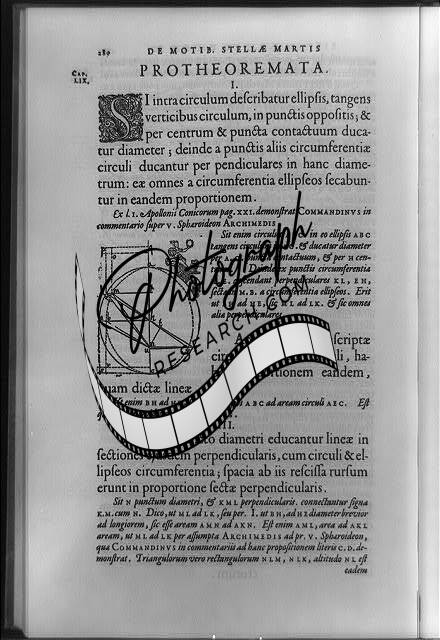 289
DE MOTIB. STELLÆ MARTIS
CAP.
LIX.
PROTHEOREMATA.
I.
SI intra circulum describatur ellipsis, tangens
verticibus circulum, in punctis oppositis; &
per centrum & puncta contactuum duca-
tur diameter; deinde a punctis aliis circumferentiæ
circuli ducantur perpendiculares in hanc diame-
trum: eæ omnes a circumferentia ellipseos secabun-
tur in eandem proportionem.
Ex l. I. Apollonii Conicorum pag. XXI. demonstrat COMMANDINVS in
commentario super V. Spharoideon ARCHIMEDIS
Sit enim circulus in eo ellipsis ABC
tangens & ducatur diameter
per contactuum, & per H cen-
Deinde punctis circumferentia
descendant perpendiculares KL, EH,
M.B. a circumferentia ellipseos. Erit
ut sic ML ad LK. & sic omnes
alia perpendiculares
Photograph
RESEARCH.COM
scriptæ
li, ha-
tionem eandem,
quam dictæ lineæ
enim BH ad ABC ad aream circuli AEC. Est
II.
to diametri educantur lineæ in
sectiones perpendicularis, cum circuli & el-
lipseos circumferentia; spacia ab iis rescissa rursum
erunt in proportione sectæ perpendicularis.
Sit N punctum diametri, & KML perpendicularis. connectuntur signa
K.M. cum N. Dico, ut ML ad LK, seu per. I. ut BH, ad HE diameter brevior
ad longiorem, sic esse aream AMN ad AKN. Est enim AML, area ad AKL
aream, ut ML ad LK per assumpta ARCHIMEDIS ad pr. V. Spharoideon,
qua COMMANDINVS in commentariis ad hanc propositionem literis C.D. de-
monstrat. Triangulorum vero rectangulorum NLM, NLK, altitudo NL est
eadem